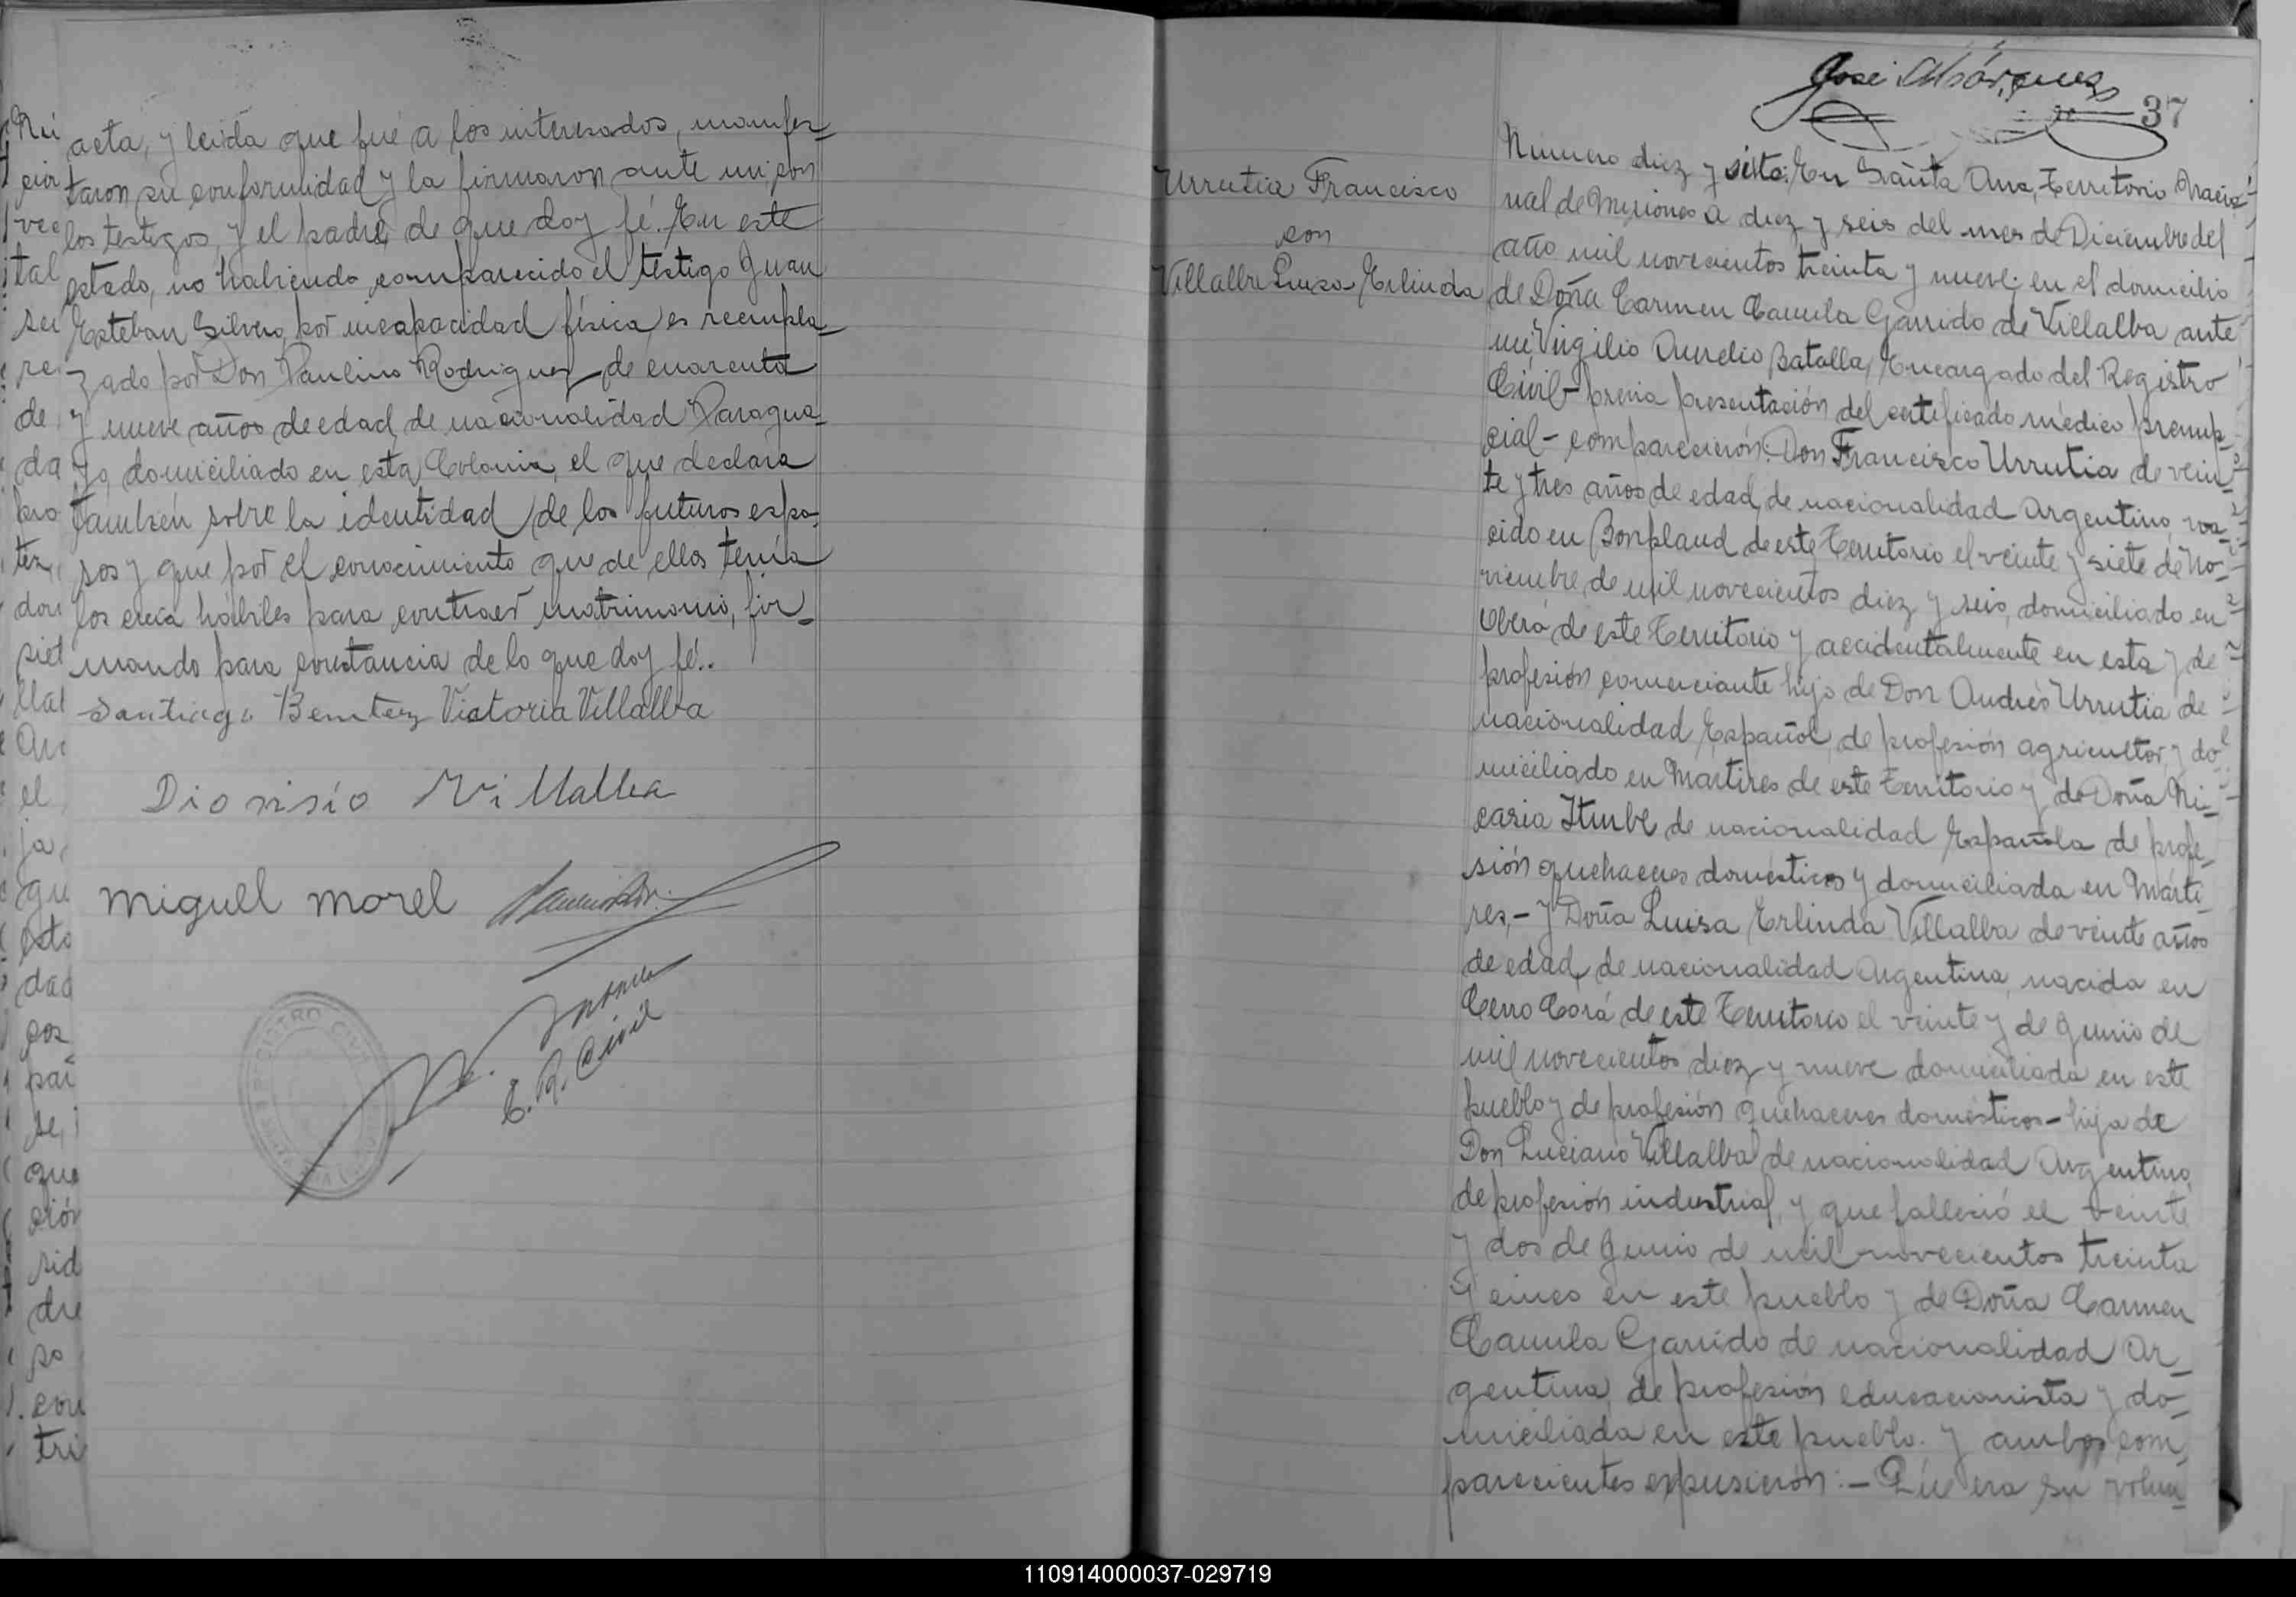 acta, y leida que fué a los interesados, manifes-
taron su conformidad y la firmaron ante mi, con
los testigos, y el padre, de que doy fé. En este
estado, no habiendo comparecido el testigo Juan
Esteban Silvero, por incapacidad física, es reempla-
zado por Don Paulino Rodriguez de cuarenta
y nueve años de edad, de nacionalidad Paragua-
yo, domiciliado en esta Colonia, el que declara
tambien sobre la identidad de los futuros espo-
sos y que por el conocimiento que de ellos tenía
los creía hábiles para contraer matrimonio, fir-
mando para constancia de lo que doy fé..
Santiago Benitez Victoria Villalba
Dionisio Villalba
Miguel Morel
E. R. Civil
REGISTRO CIVIL
José Márquez
37
Urrutia Francisco
con
Villalba Luisa Erlinda
Numero diez y siete: En Santa Ana, Territorio Nacio-
nal de Misiones a diez y seis del mes de Diciembre del
año mil novecientos treinta y nueve; en el domicilio
de Doña Carmen Camila Garrido de Villalba ante
mi, Virgilio Aurelio Batalla, Encargado del Registro
Civil - previa presentación del certificado médico prenup-
cial - comparecieron: Don Francisco Urrutia de vein-
te y tres años de edad, de nacionalidad Argentino, na-
cido en Bonpland de este Territorio el veinte y siete de No-
viembre de mil novecientos diez y seis, domiciliado en
Oberá de este Territorio y accidentalmente en esta y de
profesión comerciante hijo de Don Andrés Urrutia de
nacionalidad Español, de profesión agricultor, y do-
miciliado en Mártires de este Territorio y de Doña Ni-
caria Iturbe de nacionalidad Española de profe-
sión quehaceres domésticos y domiciliada en Márti-
res, - y Doña Luisa Erlinda Villalba de veinte años
de edad, de nacionalidad Argentina, nacida en
Cerro Corá de este Territorio el veinte y de Junio de
mil novecientos diez y nueve domiciliada en este
pueblo y de profesión quehaceres domésticos - hija de
Don Luciano Villalba de nacionalidad Argentino,
de profesión industrial, y que falleció el veinte
y dos de Junio de mil novecientos treinta
y cinco en este pueblo y de Doña Carmen
Camila Garrido de nacionalidad Ar-
gentina, de profesión educacionista y do-
miciliada en este pueblo. y ambos com-
parecientes expusieron: - Que era su volun-
110914000037-029719